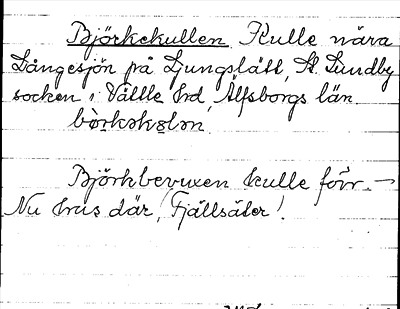 Björkekullen Kulle nära
Långesjön på Ljungslätt, St. Lundby
socken i Vättle hd, Älfsborgs län.
Björkbevuxen kulle förr. —
Nu hus där, Fjällsäter!